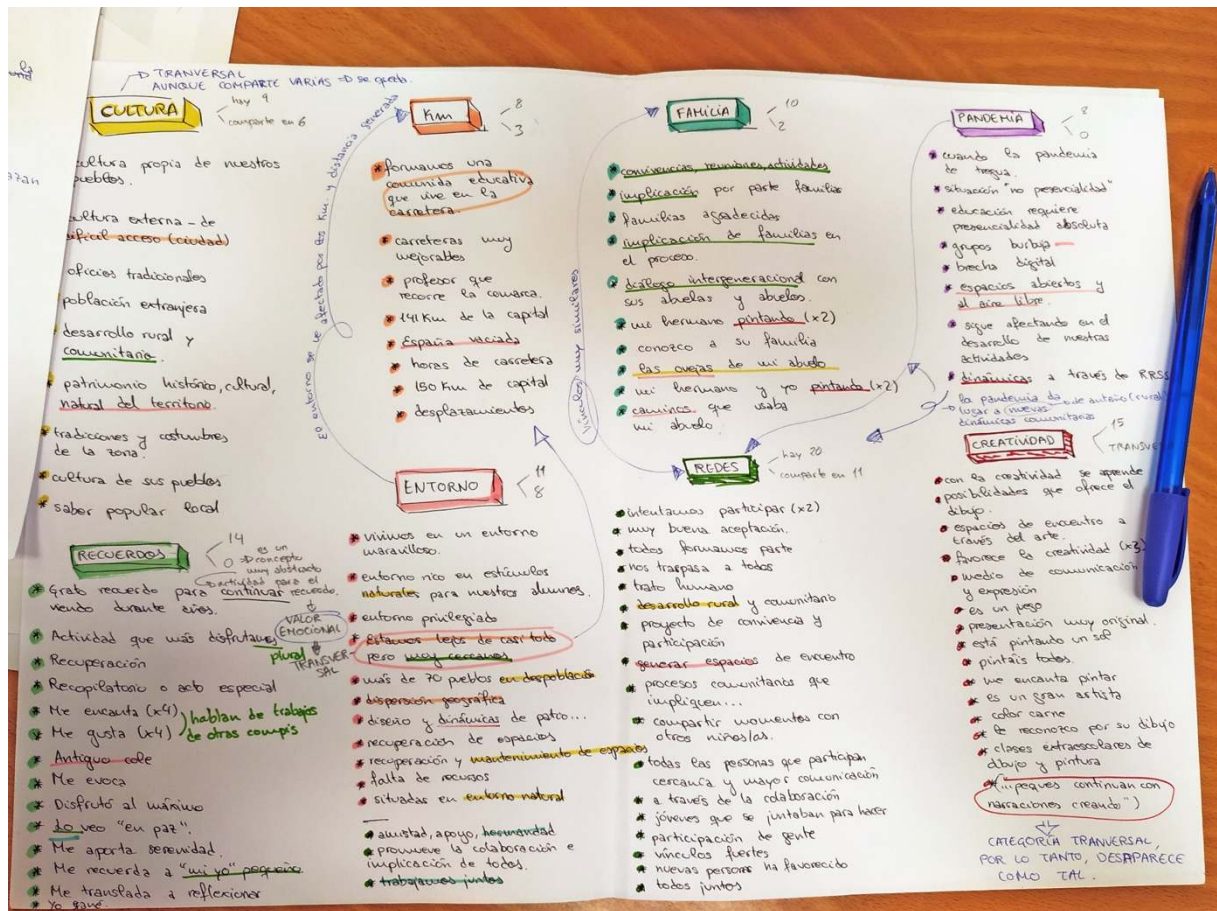 TRANVERSAL
AUNQUE COMPARTE VARIAS => se queda.
CULTURA
hay 9
comparte en 6
cultura propia de nuestros
pueblos.
cultura externa - de
difícil acceso (ciudad)
oficios tradicionales
población extranjera
desarrollo rural y
comunitario.
* patrimonio histórico, cultural,
natural del territorio.
* tradiciones y costumbres
de la zona.
* cultura de sus pueblos
* saber popular local
RECUERDOS
14
0
es un
concepto
muy abstracto
actividad para el
recuerdo.
VALOR
EMOCIONAL
TRANSVERSAL
* Grato recuerdo para continuar
viendo durante años.
* Actividad que más disfrutamos
plural
* Recuperación
* Recopilatorio o acto especial
* Me encanta (x4)
* Me gusta (x4)
hablan de trabajos
de otras compis
* Antiguo cole
* Me evoca
* Disfrutó al máximo
* Lo veo "en paz".
* Me aporta serenidad.
* Me recuerda a "mi yo" pequeño
* Me translada a reflexionar
* Yo gané.
El entorno se ve afectado por los Km. y distancia generada
Km
8
3
* formamos una
comunida educativa
que vive en la
carretera.
* carreteras muy
mejorables
* profesor que
recorre la comarca.
* 141 Km de la capital
* España vaciada
* horas de carretera
* 150 Km de capital
* desplazamientos
ENTORNO
11
8
* vivimos en un entorno
maravilloso.
* entorno rico en estímulos
naturales para nuestros alumnos.
* entorno privilegiado
* Estamos lejos de casi todo
pero muy cercanos
* más de 70 pueblos en despoblación
* dispersión geográfica
* diseño y dinámicas de patio...
* recuperación de espacios
* recuperación y mantenimiento de espacios
* falta de recursos
* situadas en entorno natural
* amistad, apoyo, hermandad
* promueve la colaboración e
implicación de todos.
* trabajamos juntos
Vínculos muy similares
FAMILIA
10
2
* convivencias, reuniones, actividades
* implicación por parte familias
* familias agradecidas
* implicación de familias en
el proceso.
* diálogo intergeneracional con
sus abuelas y abuelos.
* mi hermano pintando (x2)
* conozco a su familia
* las ovejas de mi abuelo
* mi hermano y yo pintando (x2)
* caminos que usaba
mi abuelo.
REDES
hay 20
comparte en 11
* intentamos participar (x2)
* muy buena aceptación.
* todos formamos parte
* nos traspasa a todos
* trato humano
* desarrollo rural y comunitario
* proyecto de convivencia y
participación
* generar espacios de encuentro
* procesos comunitarios que
impliquen...
* compartir momentos con
otros niños/as.
* todas las personas que participan
cercanía y mayor comunicación
* a través de la colaboración
* jóvenes que se juntaban para hacer
* participación de gente
* vínculos fuertes
* nuevas personas ha favorecido
* todos juntos
PANDEMIA
8
0
* cuando la pandemia
de tregua.
* situación "no presencialidad"
* educación requiere
presencialidad absoluta
* grupos burbuja
* brecha digital
* espacios abiertos y
al aire libre.
* sigue afectando en el
desarollo de nuestras
actividades
* dinámicas a través de RRSS
la pandemia da
lugar a nuevas
dinámicas comunitarias
de antaño (rural)
CREATIVIDAD
15
TRANSVE
* con la creatividad se aprende
* posibilidades que ofrece el
dibujo.
* espacios de encuentro a
través del arte.
* favorece la creatividad (x3)
* medio de comunicación
y expresión
* es un juego
* presentación muy original.
* está pintando un sol
* pintáis todos.
* me encanta pintar
* es un gran artista
* color carne
* le reconozco por su dibujo
* clases extraescolares de
dibujo y pintura
* ("...peques continuan con
narraciones creando")
CATEGORÍA TRANVERSAL,
POR LO TANTO, DESAPARECE
COMO TAL.